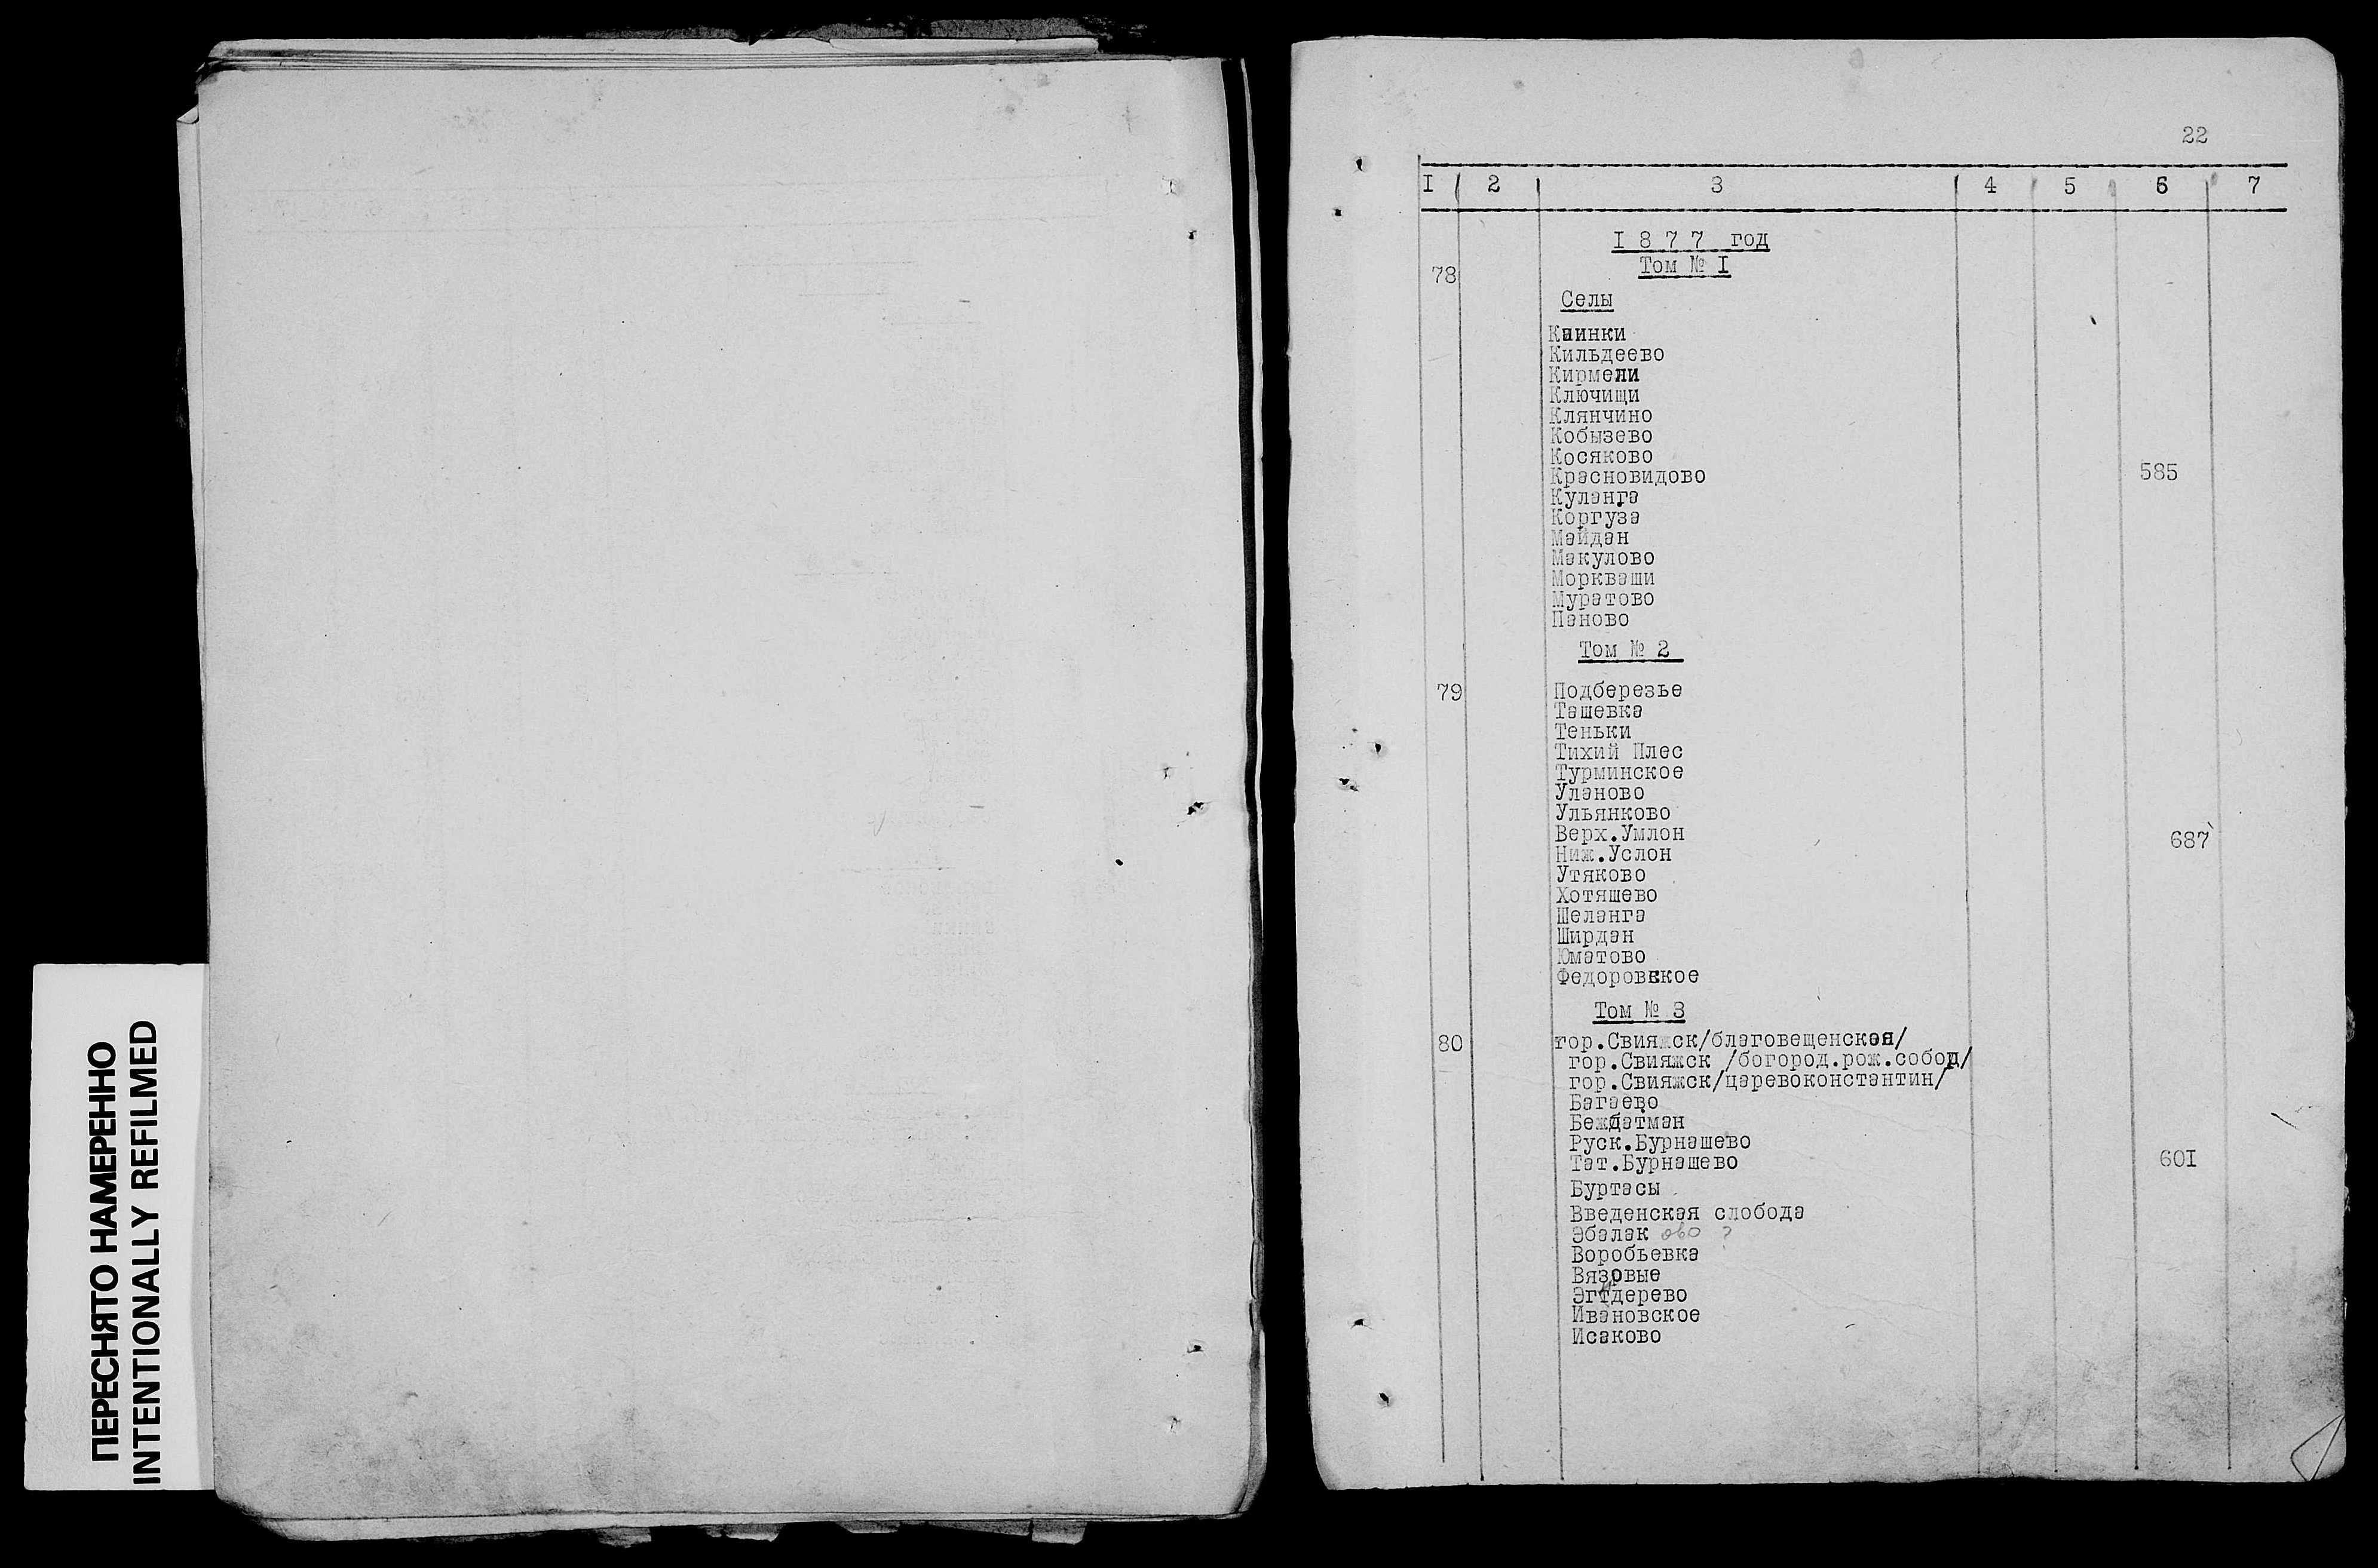 ПЕРЕСНЯТО НАМЕРЕННО
INTENTIONALLY REFILMED
22
I 2 3 4 5 6 7
I 8 7 7 год
78 Том № I
Селы
Каинки
Кильдеево
Кирмели
Ключищи
Клянчино
Кобызево
Косяково
Красновидово 585
Куланга
Коргуза
Майдан
Макулово
Моркваши
Муратово
Паново
Том № 2
79 Подберезье
Ташевка
Теньки
Тихий Плес
Турминское
Уланово
Ульянково
Верх.Умлон 687
Ниж.Услон
Утяково
Хотяшево
Шеланга
Ширдан
Юматово
Федоровское
Том № 3
80 гор.Свияжск/благовещенская/
гор.Свияжск /богород.рож.собор/
гор.Свияжск/царевоконстантин/
Багаево
Бежбатман
Руск.Бурнашево
Тат.Бурнашево 60I
Буртасы
Введенская слобода
Эбалак ово ?
Воробьевка
Вязовые
Ивановское
Исаково